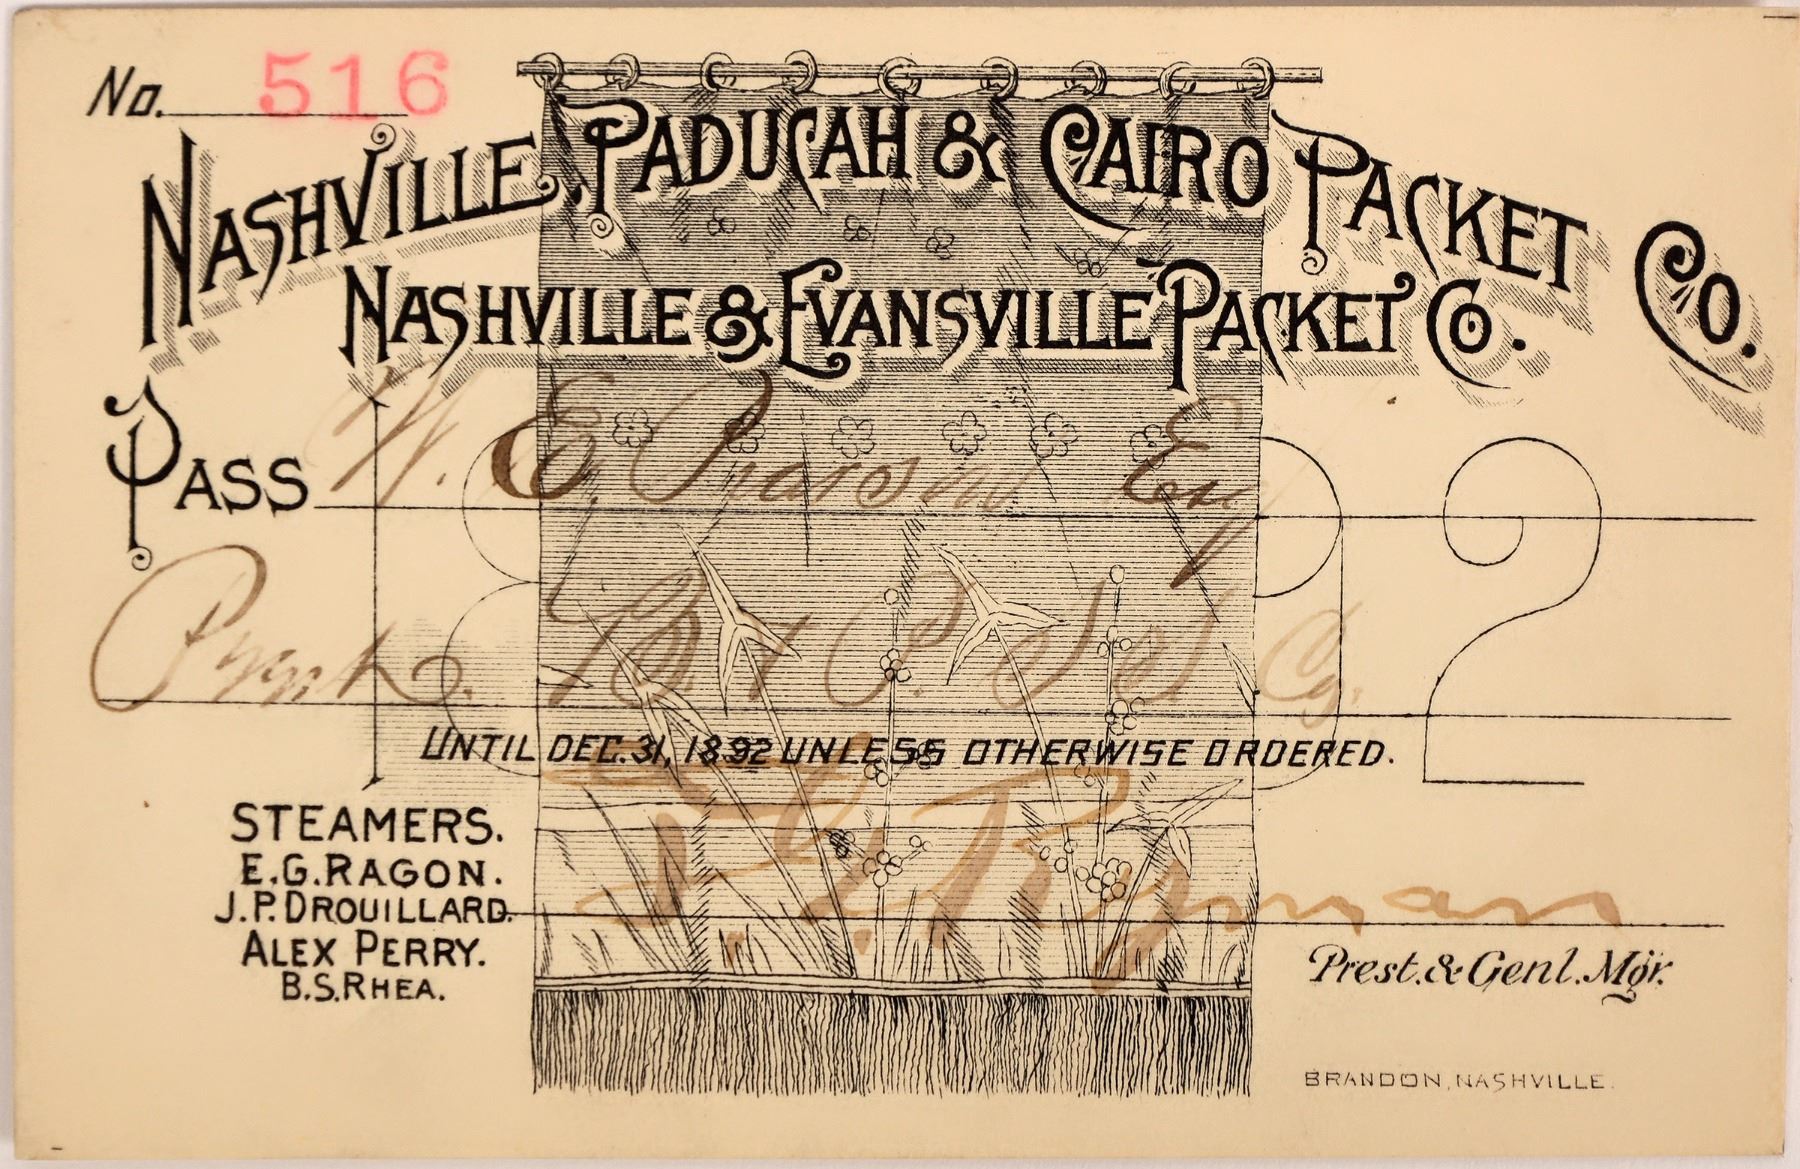 No. 516
NASHVILLE, PADUCAH & CAIRO PACKET CO.
NASHVILLE & EVANSVILLE PACKET CO.
PASS W. E. Pearson Esq
1892
UNTIL DEC. 31, 1892 UNLESS OTHERWISE ORDERED.
STEAMERS.
E.G. RAGON.
J.P. DROUILLARD.
ALEX PERRY.
B.S. RHEA.
Ryman
Prest. & Genl. Mgr.
BRANDON, NASHVILLE.